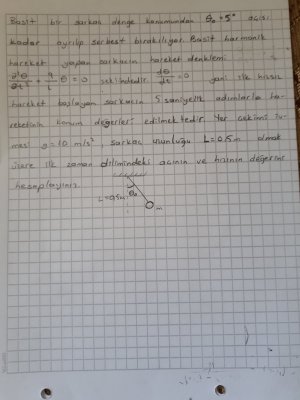 Basit bir sarkaç denge konumundan θ₀=5° açısı
kadar ayrılıp serbest bırakılıyor. Basit harmonik
hareket yapan sarkacın hareket denklemi
d²θ/dt² + g/L θ = 0 şeklindedir. dθ/dt = 0 yani ilk hızsız
harekete başlayan sarkacın saniyelik adımlarla ha-
reketinin konum değerleri edilmektedir. Yer çekimi iv-
mesi g=10 m/s², sarkaç uzunluğu L=0,5m olmak
üzere ilk zaman dilimindeki açının ve hızının değerini
hesaplayınız.
L=0,5m θ₀
m